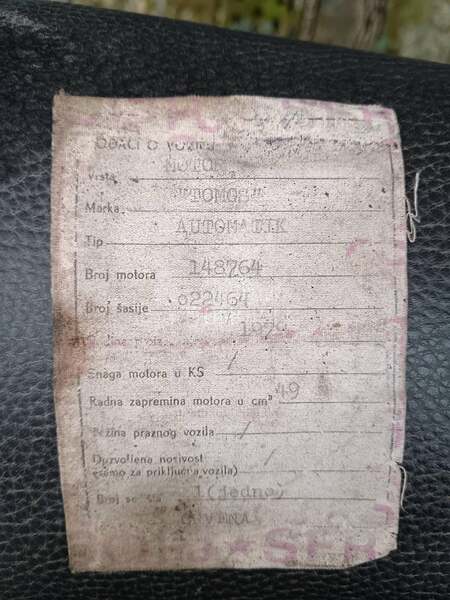 PODACI O VOZILU
Vrsta MOTOR
Marka "TOMOS"
Tip AUTOMATIK
Broj motora 148764
Broj šasije 022464
1979
Snaga motora u KS /
Radna zapremina motora u cm³ 49
Težina praznog vozila /
Dozvoljena nosivost /
(samo za priključna vozila)
Broj 1(jedno)